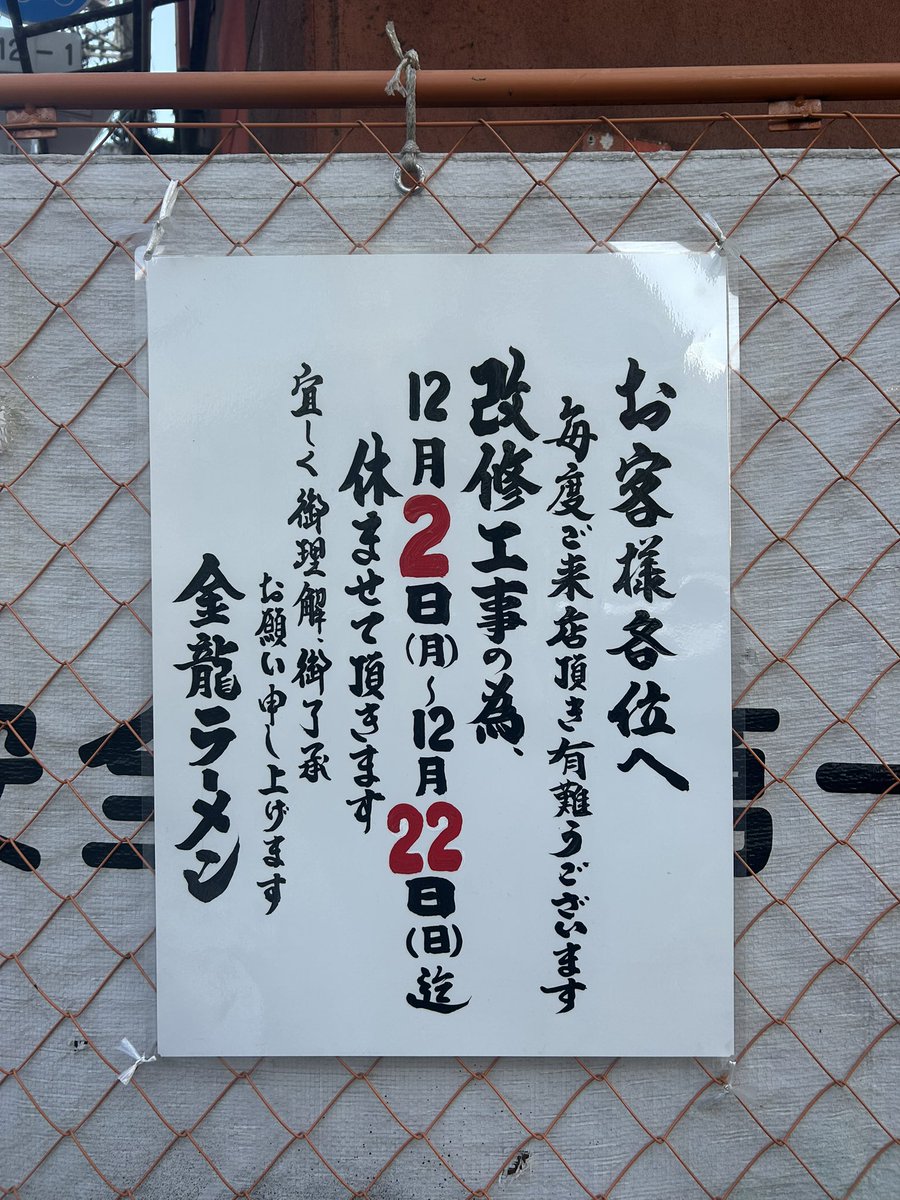 お客様各位へ
毎度ご来店頂き有難うございます
改修工事の為、
12月2日(月)～12月22日(日)迄
休ませて頂きます
宜しく御理解、御了承
お願い申し上げます
金龍ラーメン
12-1